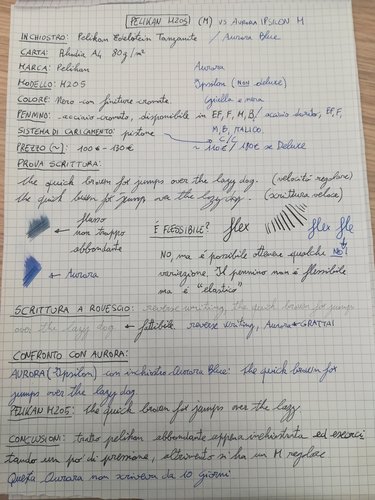 PELIKAN M205 (M) VS AURORA IPSILON M
INCHIOSTRO: Pelikan Edelstein Tanzanite / Aurora Blue
CARTA: Rhodia A4 80g/m²
MARCA: Pelikan Aurora
MODELLO: M205 Ipsilon (NON deluxe)
COLORE: Nero con finiture cromate. Gialla e nera
PENNINO: acciaio cromato, disponibile in EF, F, M, B / acciaio dorato, EF, F,
M, B, ITALICO.
SISTEMA DI CARICAMENTO: pistone C/C
PREZZO (~): 100€-130€ ~ 110€ / 180€ se Deluxe
PROVA SCRITTURA:
the quick brown fox jumps over the lazy dog. (velocità regolare)
the quick brown fox jumps over the lazy dog. (scrittura veloce)
flusso
non troppo
abbondante
Aurora
È FLESSIBILE? flex flex fle
NO, ma è possibile ottenere qualche NO!
variazione. Il pennino non è flessibile
ma è "elastico"
SCRITTURA A ROVESCIO: reverse writing, the quick brown fox jumps
over the lazy dog. ← fattibile reverse writing, Aurora ← GRATTA!
CONFRONTO CON AURORA:
AURORA (Ipsilon) con inchiostro Aurora Blue: the quick brown fox
jumps over the lazy dog.
PELIKAN M205: the quick brown fox jumps over the lazy
CONCLUSIONI: tratto pelikan abbondante appena inchiostrata ed eserci
tando un po' di pressione, altrimenti si ha un M regolare
Questa Aurora non scriveva da 10 giorni